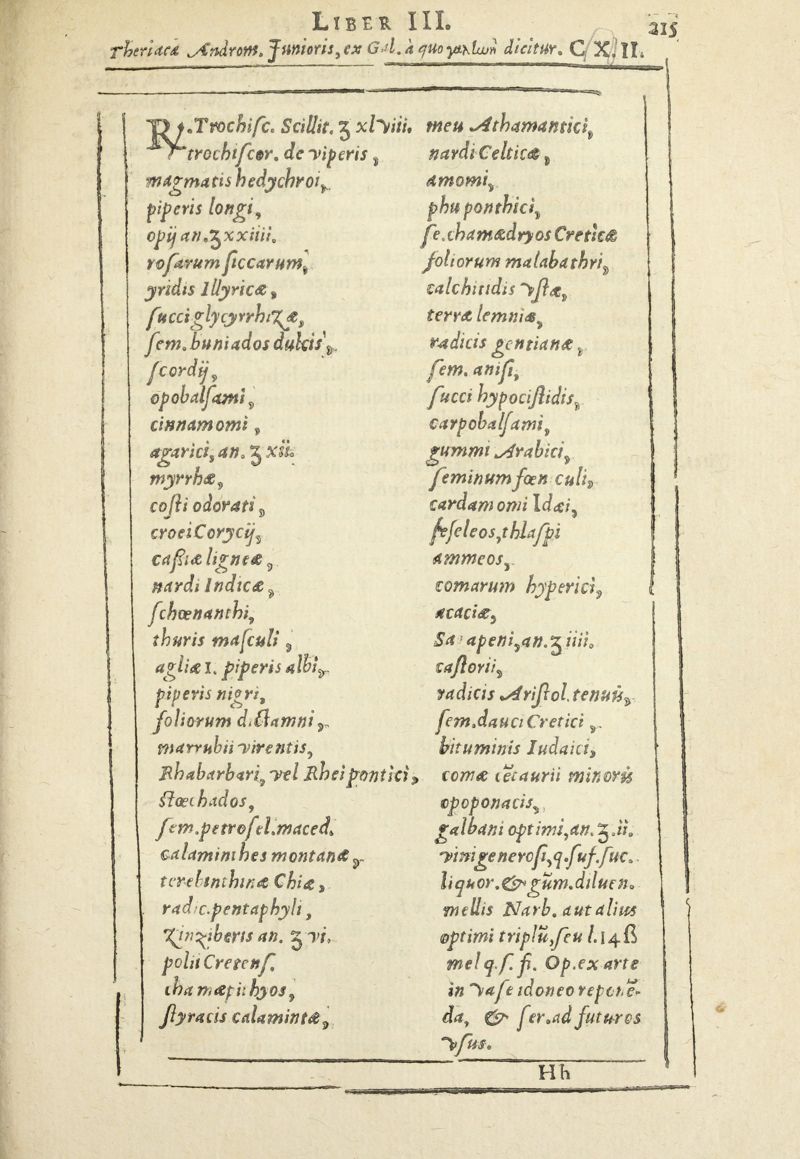 LIBER III. 215
Theriaca Androm. Junioris, ex Gal. à quo γαλίων dicitur. C X II.
℞. Trochisc. Scillit. ʒ xlviii.
trochiscor. de viperis,
magmatis hedychroi,
piperis longi,
opij an. ʒ xxiiii.
rosarum siccarum,
yridis Illyricæ,
succi glycyrrhizæ,
sem. buniados dulcis,
scordij,
opobalsami,
cinnamomi,
agarici, an. ʒ xii.
myrrhæ,
costi odorati,
croci Corycij,
casiæ ligneæ,
nardi Indicæ,
schœnanthi,
thuris masculi,
agliæ 1. piperis albi,
piperis nigri,
foliorum dictamni,
marrubii virentis,
Rhabarbari, vel Rhei pontici,
stœchados,
sem. petrosel. maced.
calaminthes montanæ,
terebinthinæ Chiæ,
radic. pentaphyli,
Zinziberis an. ʒ vi.
polii Cretens.
chamæpithyos,
styracis calamintæ,
meu Athamantici,
nardi Celticæ,
amomi,
phu ponthici,
se. chamædryos Creticæ
foliorum malabathri,
calchitidis vstæ,
terræ lemniæ,
radicis gentianæ,
sem. anisi,
succi hypocistidis,
carpobalsami,
gummi Arabici,
seminum fœniculi,
cardamomi Idæi,
seseleos, thlaspi
ammeos,
comarum hyperici,
acaciæ,
Sagapeni, an. ʒ iiii.
castorii,
radicis Aristol. tenuis,
sem. dauci Cretici,
bituminis Iudaici,
comæ cētaurii minoris
opoponacis,
galbani optimi, an. ʒ .ii.
vini generosi, q. suf. suc.
liquor. & gum. diluen.
mellis Narb. aut alius
optimi triplū, seu l. 14 ß
mel q. s. fi. Op. ex arte
in vase idoneo reponē-
da, & ser. ad futuros
vsus.
Hh